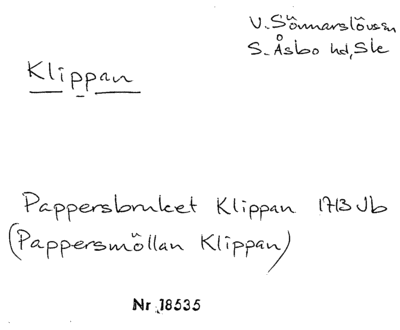 V. Sönnarslövs sn
S. Åsbo hd, Skе
Klippan
Pappersbruket Klippan 1713 Jb
(Pappersmöllan Klippan)
Nr 18535